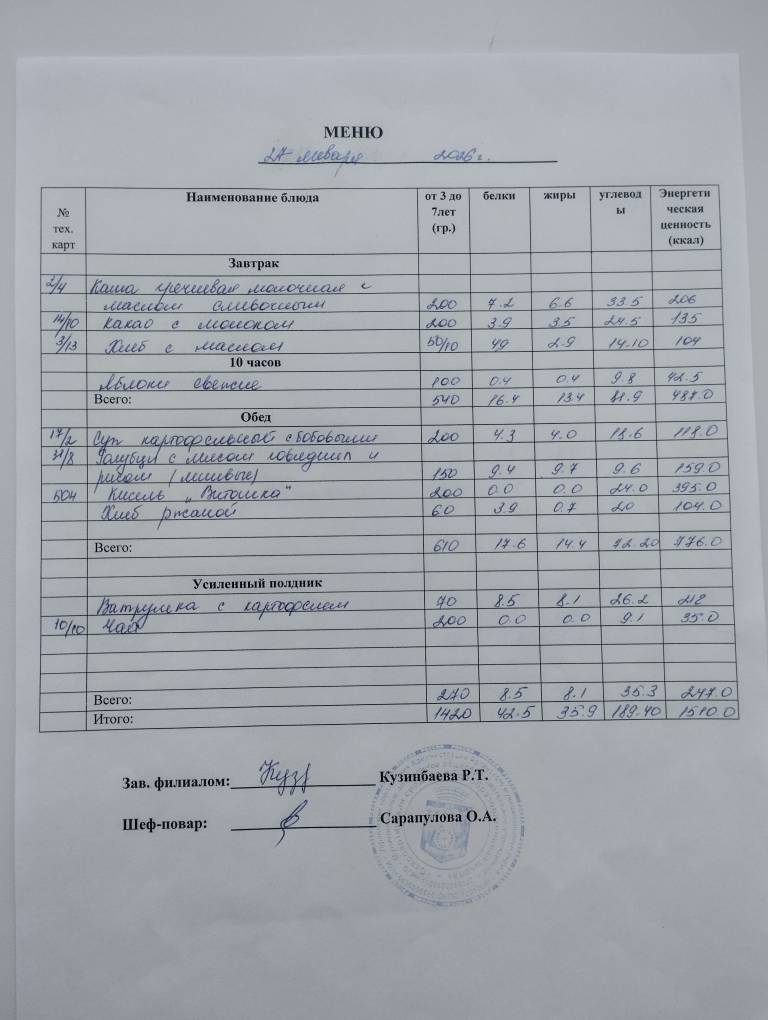 МЕНЮ
27 января 2026 г.
№ тех. карт Наименование блюда от 3 до 7лет (гр.) белки жиры углеводы Энергетическая ценность (ккал)
Завтрак
2/4 Каша гречневая молочная с
маслом сливочным 200 7.2 6.6 33.5 206
14/10 Какао с молоком 200 3.9 3.5 24.5 135
3/13 Хлеб с маслом 50/10 49 2.9 14.10 104
10 часов
Яблоки свежие 100 0.4 0.4 9.8 42.5
Всего: 540 16.4 13.4 81.9 487.0
Обед
17/2 Суп картофельный с бобовыми 200 4.3 4.0 18.6 118.0
31/8 Голубцы с мясом говядины и
рисом (ленивые) 150 9.4 9.7 9.6 159.0
504 Кисель „Витошка" 200 0.0 0.0 24.0 395.0
Хлеб ржаной 60 3.9 0.7 20 104.0
Всего: 610 17.6 14.4 72.20 776.0
Усиленный полдник
Ватрушка с картофелем 70 8.5 8.1 26.2 212
10/10 Чай 200 0.0 0.0 9.1 35.0
Всего: 270 8.5 8.1 35.3 247.0
Итого: 1420 42.5 35.9 189.40 1510.0
Зав. филиалом: Кузинбаева Р.Т.
Шеф-повар: Сарапулова О.А.